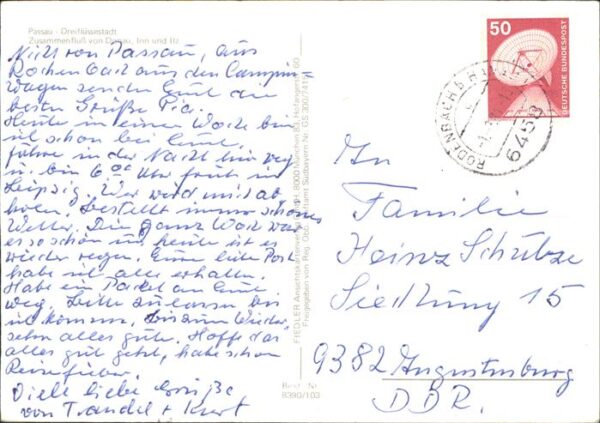 Passau - Dreiflüssestadt
Zusammenfluß von Donau, Inn und Ilz
Nicht von Passau, aus
Rochenbach aus den Campin=
wagen senden Euch die
besten Grüße Pia.
Heute in einer Woche bin
ich schon bei Euch.
fahre in der Nacht hier weg
u. bin 6 00 Uhr früh in
Leipzig. Wer wird mich ab
holen. bestellt immer schönes
Wetter. Die ganze Woche war
es so schön und heute ist es
wieder regen. Eure liebe Post
habe ich alle erhalten.
Habe ein Packet an Euch
weg. Bitte zulassen bis
ich komme, bis zum Wieder=
sehn alles gute. Hoffe das
alles gut geht, habe schon
Reisefieber.
Viele liebe Grüße
von Traudel + Kurt
FIEDLER Ansichtskartenverlag 8000 München 83
Freigegeben von Reg. Obb.
Best.-Nr.
8390/103
50
DEUTSCHE BUNDESPOST
RODENBACH B H
6458
An
Familie
Heinz Schulze
Siedlung 15
9382 Augustusburg
DDR.